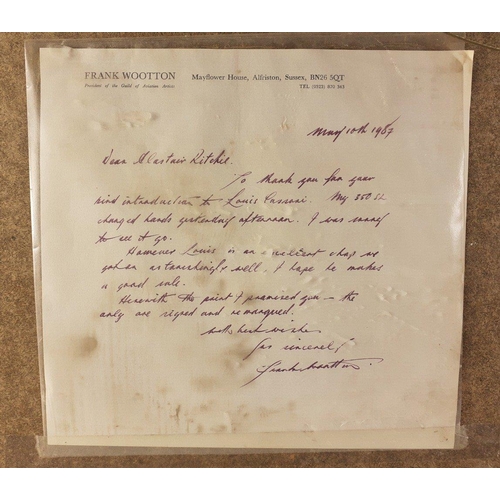 FRANK WOOTTON
President of the Guild of Aviation Artists
Mayflower House, Alfriston, Sussex, BN26 5QT
TEL (0323) 870 343
May 10th 1987
Dear Alastair Ritchie.
To thank you for your
kind introduction to Louis. My
changed hands yesterday afternoon. I was sorry
to see it go.
However Louis is an excellent chap we
got on astonishingly well. I hope he makes
a good sale.
Herewith the print I promised you – the
only one signed and remarqued.
with best wishes
Yrs sincerely
Frank Wootton